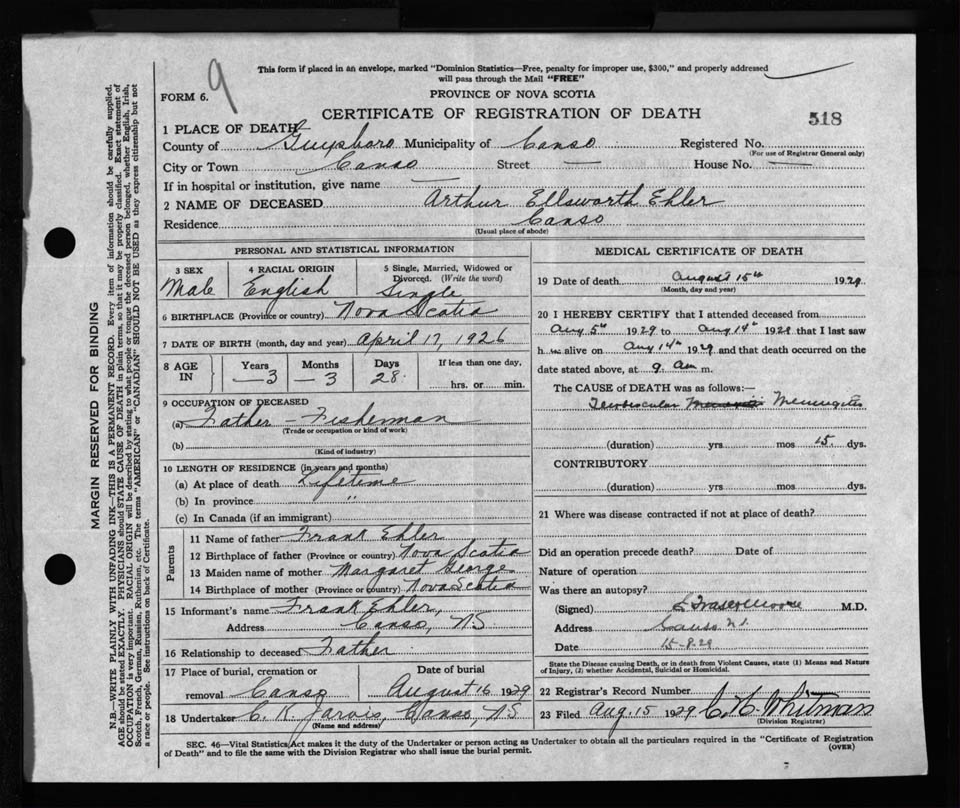 This form if placed in an envelope, marked "Dominion Statistics—Free, penalty for improper use, $300," and properly addressed
will pass through the Mail "FREE"
9
FORM 6.
PROVINCE OF NOVA SCOTIA
CERTIFICATE OF REGISTRATION OF DEATH
518
1 PLACE OF DEATH
County of Guysboro Municipality of Canso Registered No.
(For use of Registrar General only)
City or Town Canso Street — House No. —
If in hospital or institution, give name —
2 NAME OF DECEASED Arthur Ellsworth Ehler
Residence Canso
(Usual place of abode)
PERSONAL AND STATISTICAL INFORMATION
3 SEX 4 RACIAL ORIGIN 5 Single, Married, Widowed or
Divorced. (Write the word)
Male English Single
6 BIRTHPLACE (Province or country) Nova Scotia
7 DATE OF BIRTH (month, day and year) April 17, 1926
8 AGE IN Years Months Days If less than one day,
3 3 28 hrs. or min.
9 OCCUPATION OF DECEASED
(a) Father Fisherman
(Trade or occupation or kind of work)
(b)
(Kind of industry)
10 LENGTH OF RESIDENCE (in years and months)
(a) At place of death Lifetime
(b) In province "
(c) In Canada (if an immigrant)
Parents
11 Name of father Frank Ehler
12 Birthplace of father (Province or country) Nova Scotia
13 Maiden name of mother Margaret George
14 Birthplace of mother (Province or country) Nova Scotia
15 Informant's name Frank Ehler,
Address Canso, NS
16 Relationship to deceased Father
17 Place of burial, cremation or Date of burial
removal Canso August 16 1929
18 Undertaker C. K. Jarvis, Canso, NS
(Name and address)
MEDICAL CERTIFICATE OF DEATH
19 Date of death August 15th 1929
(Month, day and year)
20 I HEREBY CERTIFY that I attended deceased from
Aug 5th 1929 to Aug 14th 1929 that I last saw
h im alive on Aug 14th 1929 and that death occurred on the
date stated above, at 9 am m.
The CAUSE of DEATH was as follows:—
Meningitis
(duration) yrs. mos 15 dys.
CONTRIBUTORY
(duration) yrs mos dys.
21 Where was disease contracted if not at place of death?
Did an operation precede death? Date of
Nature of operation
Was there an autopsy?
(Signed) Moore M.D.
Address Canso N.S.
Date 15-8-29
State the Disease causing Death, or in death from Violent Causes, state (1) Means and Nature
of Injury, (2) whether Accidental, Suicidal or Homicidal.
22 Registrar's Record Number
23 Filed Aug. 15 1929 Whitman
(Division Registrar)
SEC. 46—Vital Statistics Act makes it the duty of the Undertaker or person acting as Undertaker to obtain all the particulars required in the "Certificate of Registration
of Death" and to file the same with the Division Registrar who shall issue the burial permit.
(OVER)
MARGIN RESERVED FOR BINDING
N.B.—WRITE PLAINLY WITH UNFADING INK—THIS IS A PERMANENT RECORD. Every item of information should be carefully supplied.
AGE should be stated EXACTLY. PHYSICIANS should STATE CAUSE OF DEATH in plain terms, so that it may be properly classified. Exact statement of
OCCUPATION is very important. RACIAL ORIGIN will be described by stating to what people or tongue the deceased person belonged, whether English, Irish,
Scotch, French, German, Russian, Ruthenian, etc. The terms "AMERICAN" or "CANADIAN" SHOULD NOT BE USED as they express citizenship but not
a race or people. See instructions on back of Certificate.